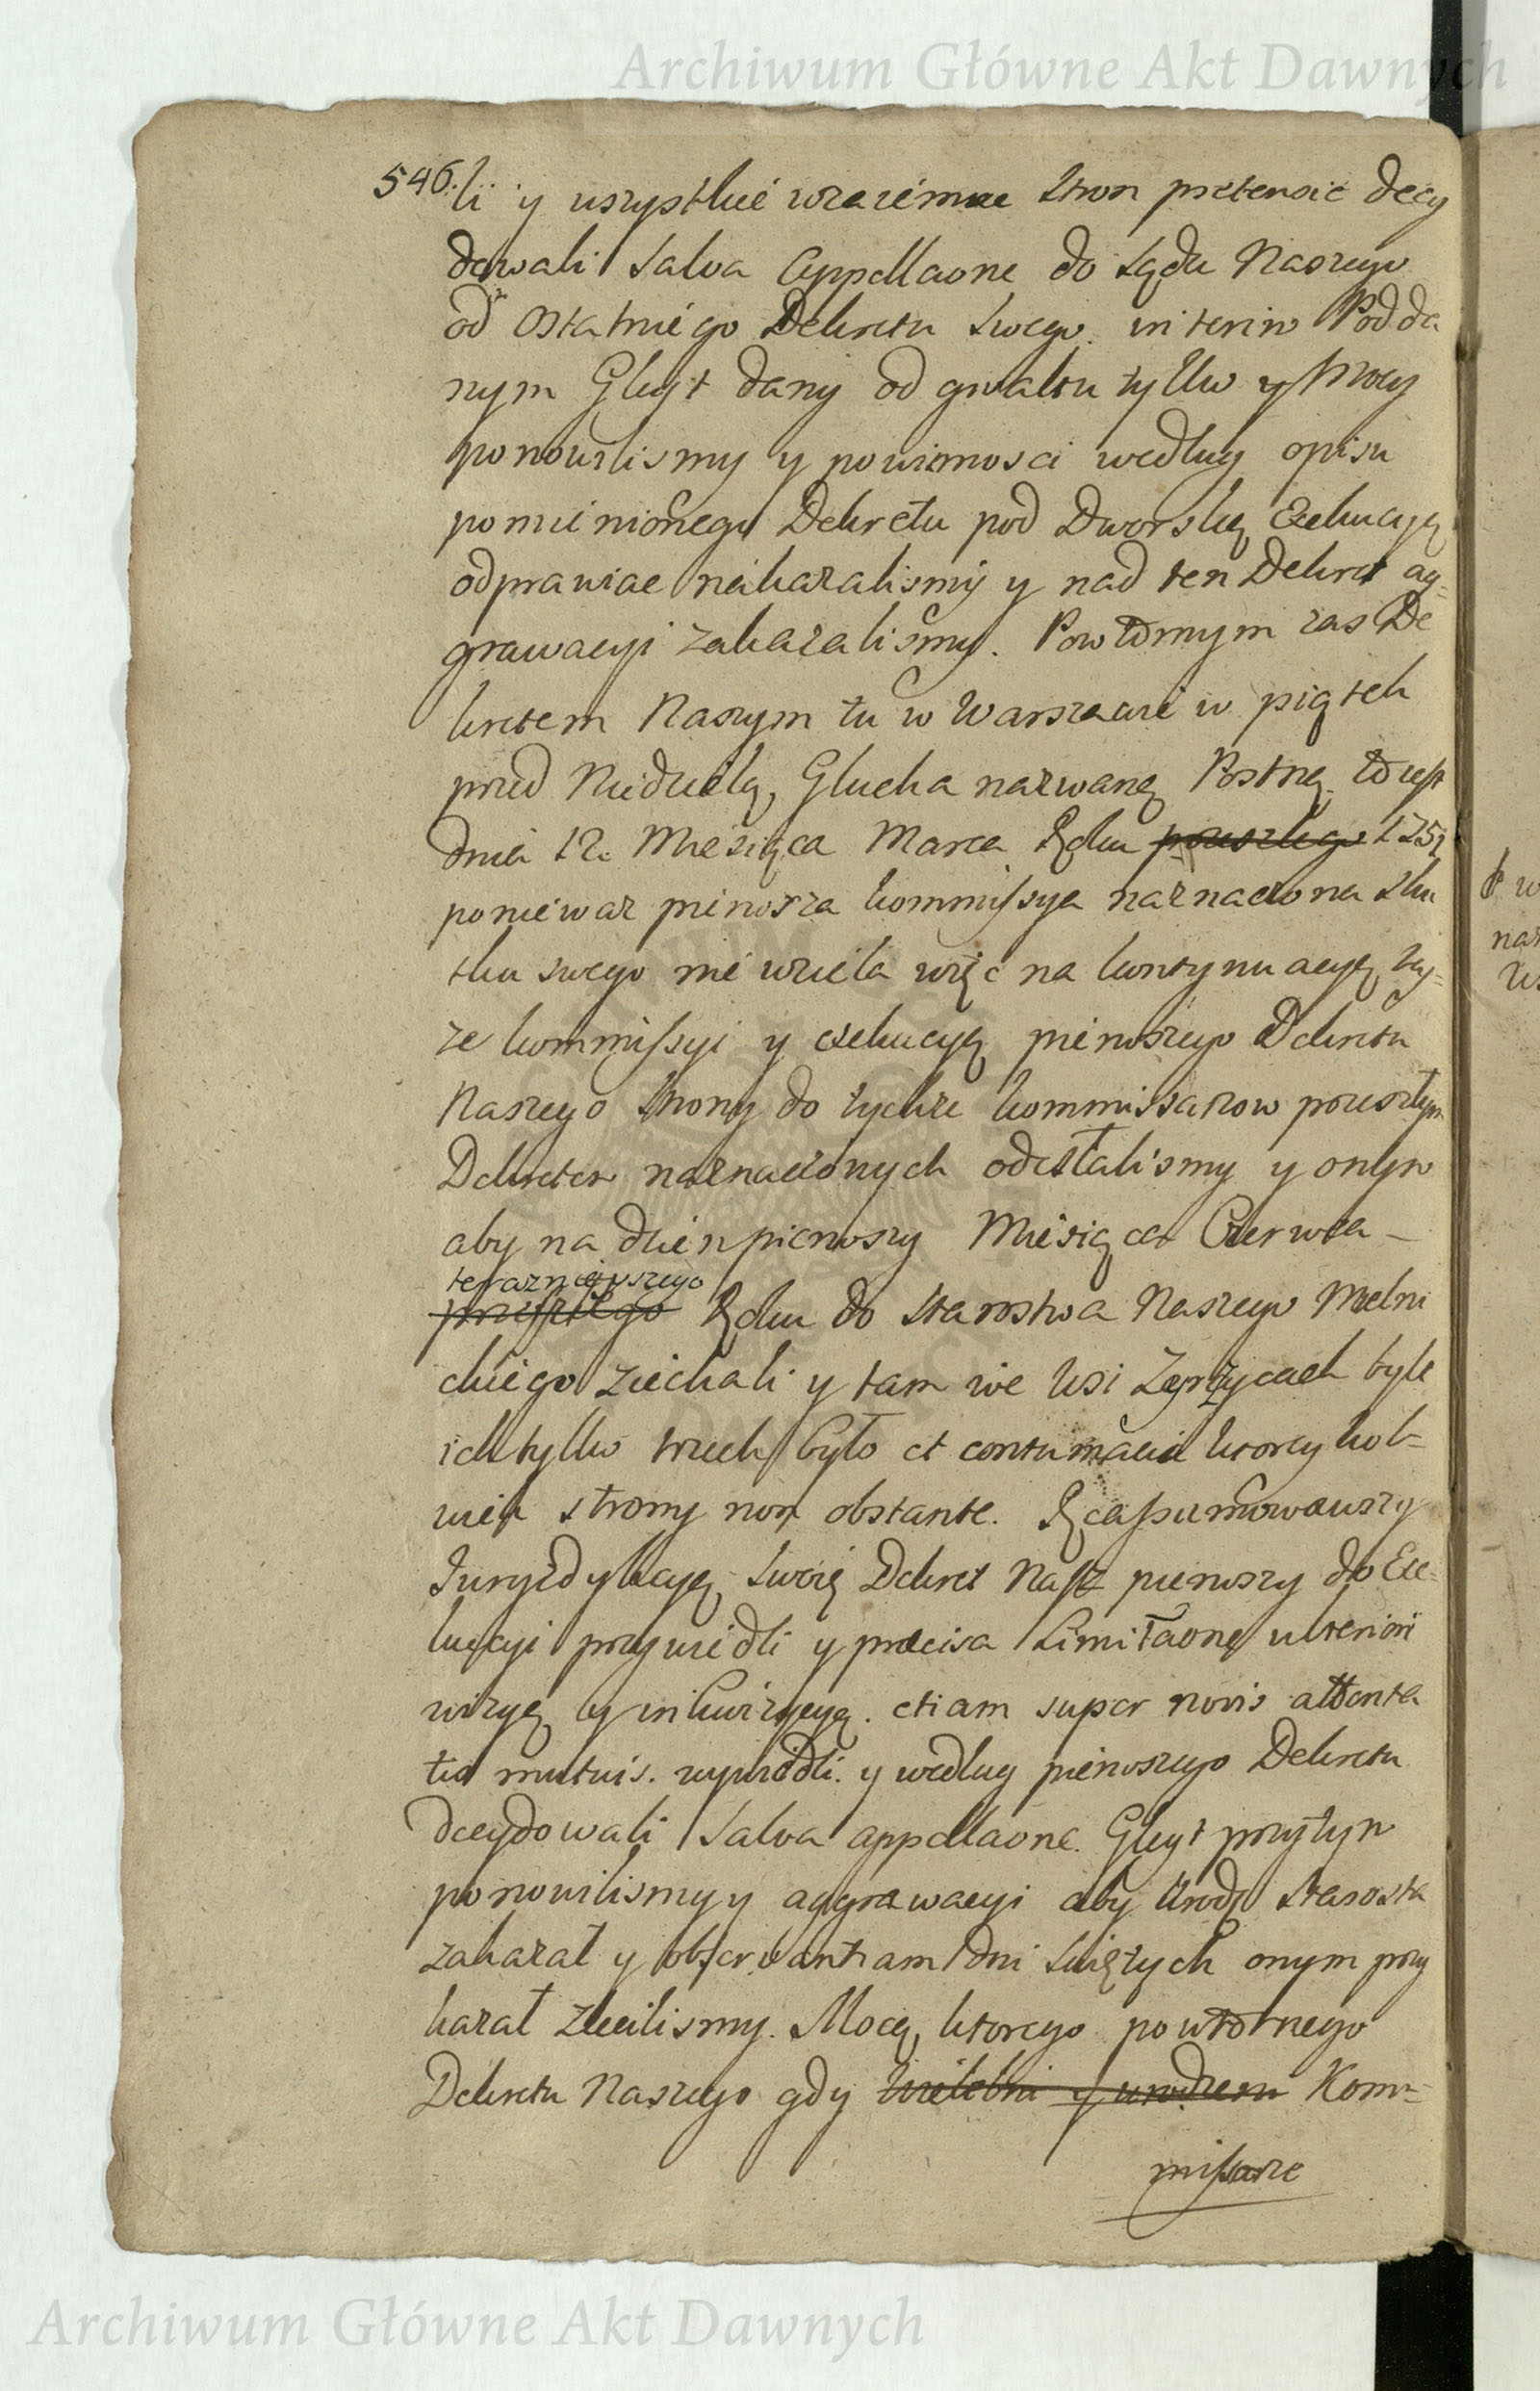 Archiwum Główne Akt Dawnych
546. li y wszystkie wzaiemne stron pretensie decy
dowali salva Appellaone do Sądu Naszego
od Ostatniego Dekretu Swego. interim Podda
nym Gleyt dany od gwałtu tylko y Mocy
ponowilismy y powinnosci według opisu
pomienionego Dekretu pod Dworską Exekucyą
odprawiac nakazalismy y nad ten Dekret ag=
grawacyi zakazalismy. Powtornym zas De
kretem Naszym tu w Warszawie w piątek
przed Niedzielą, Glucha nazwaną Postną. to iest
dnia 12. Miesiąca Marca Roku przeszlego 1751
poniewaz pierwsza kommissya naznaczona sku
tku swego nie wzieła więc na kontynuacyą tey=
ze kommissyi y exekucyą pierwszego Dekretu
Naszego strony do tychze kommissarzow przeszłym
Dekretem naznaczonych odesłalismy y onym
aby na dzien pierwszy Miesiąca Czerwca –
teraznieyszego
przeszłego Roku do Starostwa Naszego Mielni
ckiego ziechali y tam we Wsi Zgrzycach byle
ich tylko trzech było et contumacia ktorey kol=
wiek strony non obstante. Reassumowawszy
Juryzdykcyą Swoię Dekret Nasz pierwszy do Exe=
kucyi przywiedli y praecisa Limitaone ulteriori
wizyą y inkwizycyą. etiam super novis attenta
tis mutuis. wywiedli. y według pierwszego Dekretu
decydowali Salva appellaone. Gleyt przytym
ponowilismy y aggrawacyi aby Urodz Starosta
zakazał y observantiam dni Swiętych onym przy
kazał zlecilismy. Mocą ktorego powtornego
Dekretu Naszego gdy Wielebni y urodzeni Kom=
missarze
Archiwum Główne Akt Dawnych